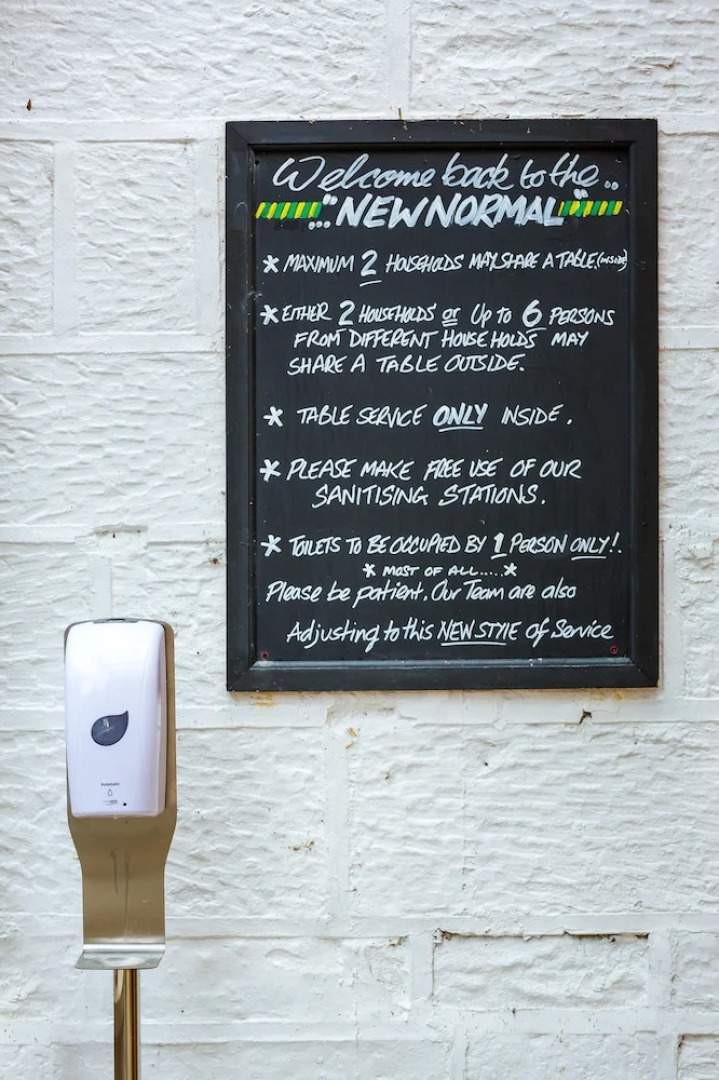 Welcome back to the..
..."NEW NORMAL"
* MAXIMUM 2 HOUSEHOLDS MAY SHARE A TABLE. (INSIDE)
* EITHER 2 HOUSEHOLDS or Up to 6 PERSONS
FROM DIFFERENT HOUSEHOLDS MAY
SHARE A TABLE OUTSIDE.
* TABLE SERVICE ONLY INSIDE.
* PLEASE MAKE FREE USE OF OUR
SANITISING STATIONS.
* TOILETS TO BE OCCUPIED BY 1 PERSON ONLY!.
* MOST OF ALL.....*
Please be patient. Our Team are also
Adjusting to this NEW STYLE of Service